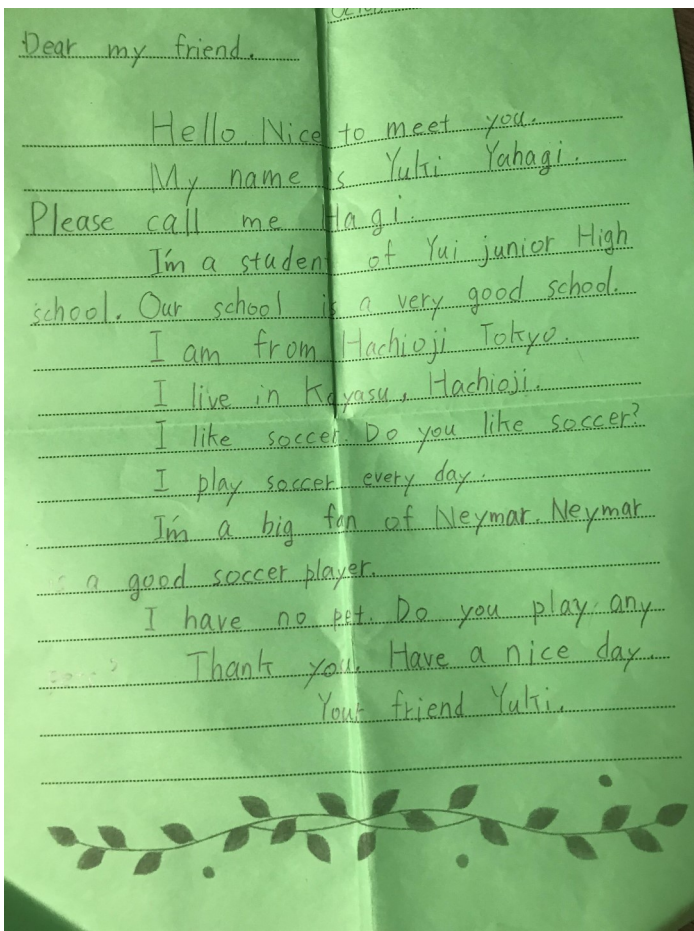 Dear my friend.
Hello. Nice to meet you.
My name is Yuki Yahagi.
Please call me Hagi.
I'm a student of Yui junior High
school. Our school is a very good school.
I am from Hachioji Tokyo.
I live in Koyasu, Hachioji.
I like soccer. Do you like soccer?
I play soccer every day.
I'm a big fan of Neymar. Neymar
a good soccer player.
I have no pet. Do you play any
Thank you. Have a nice day.
Your friend Yuki.